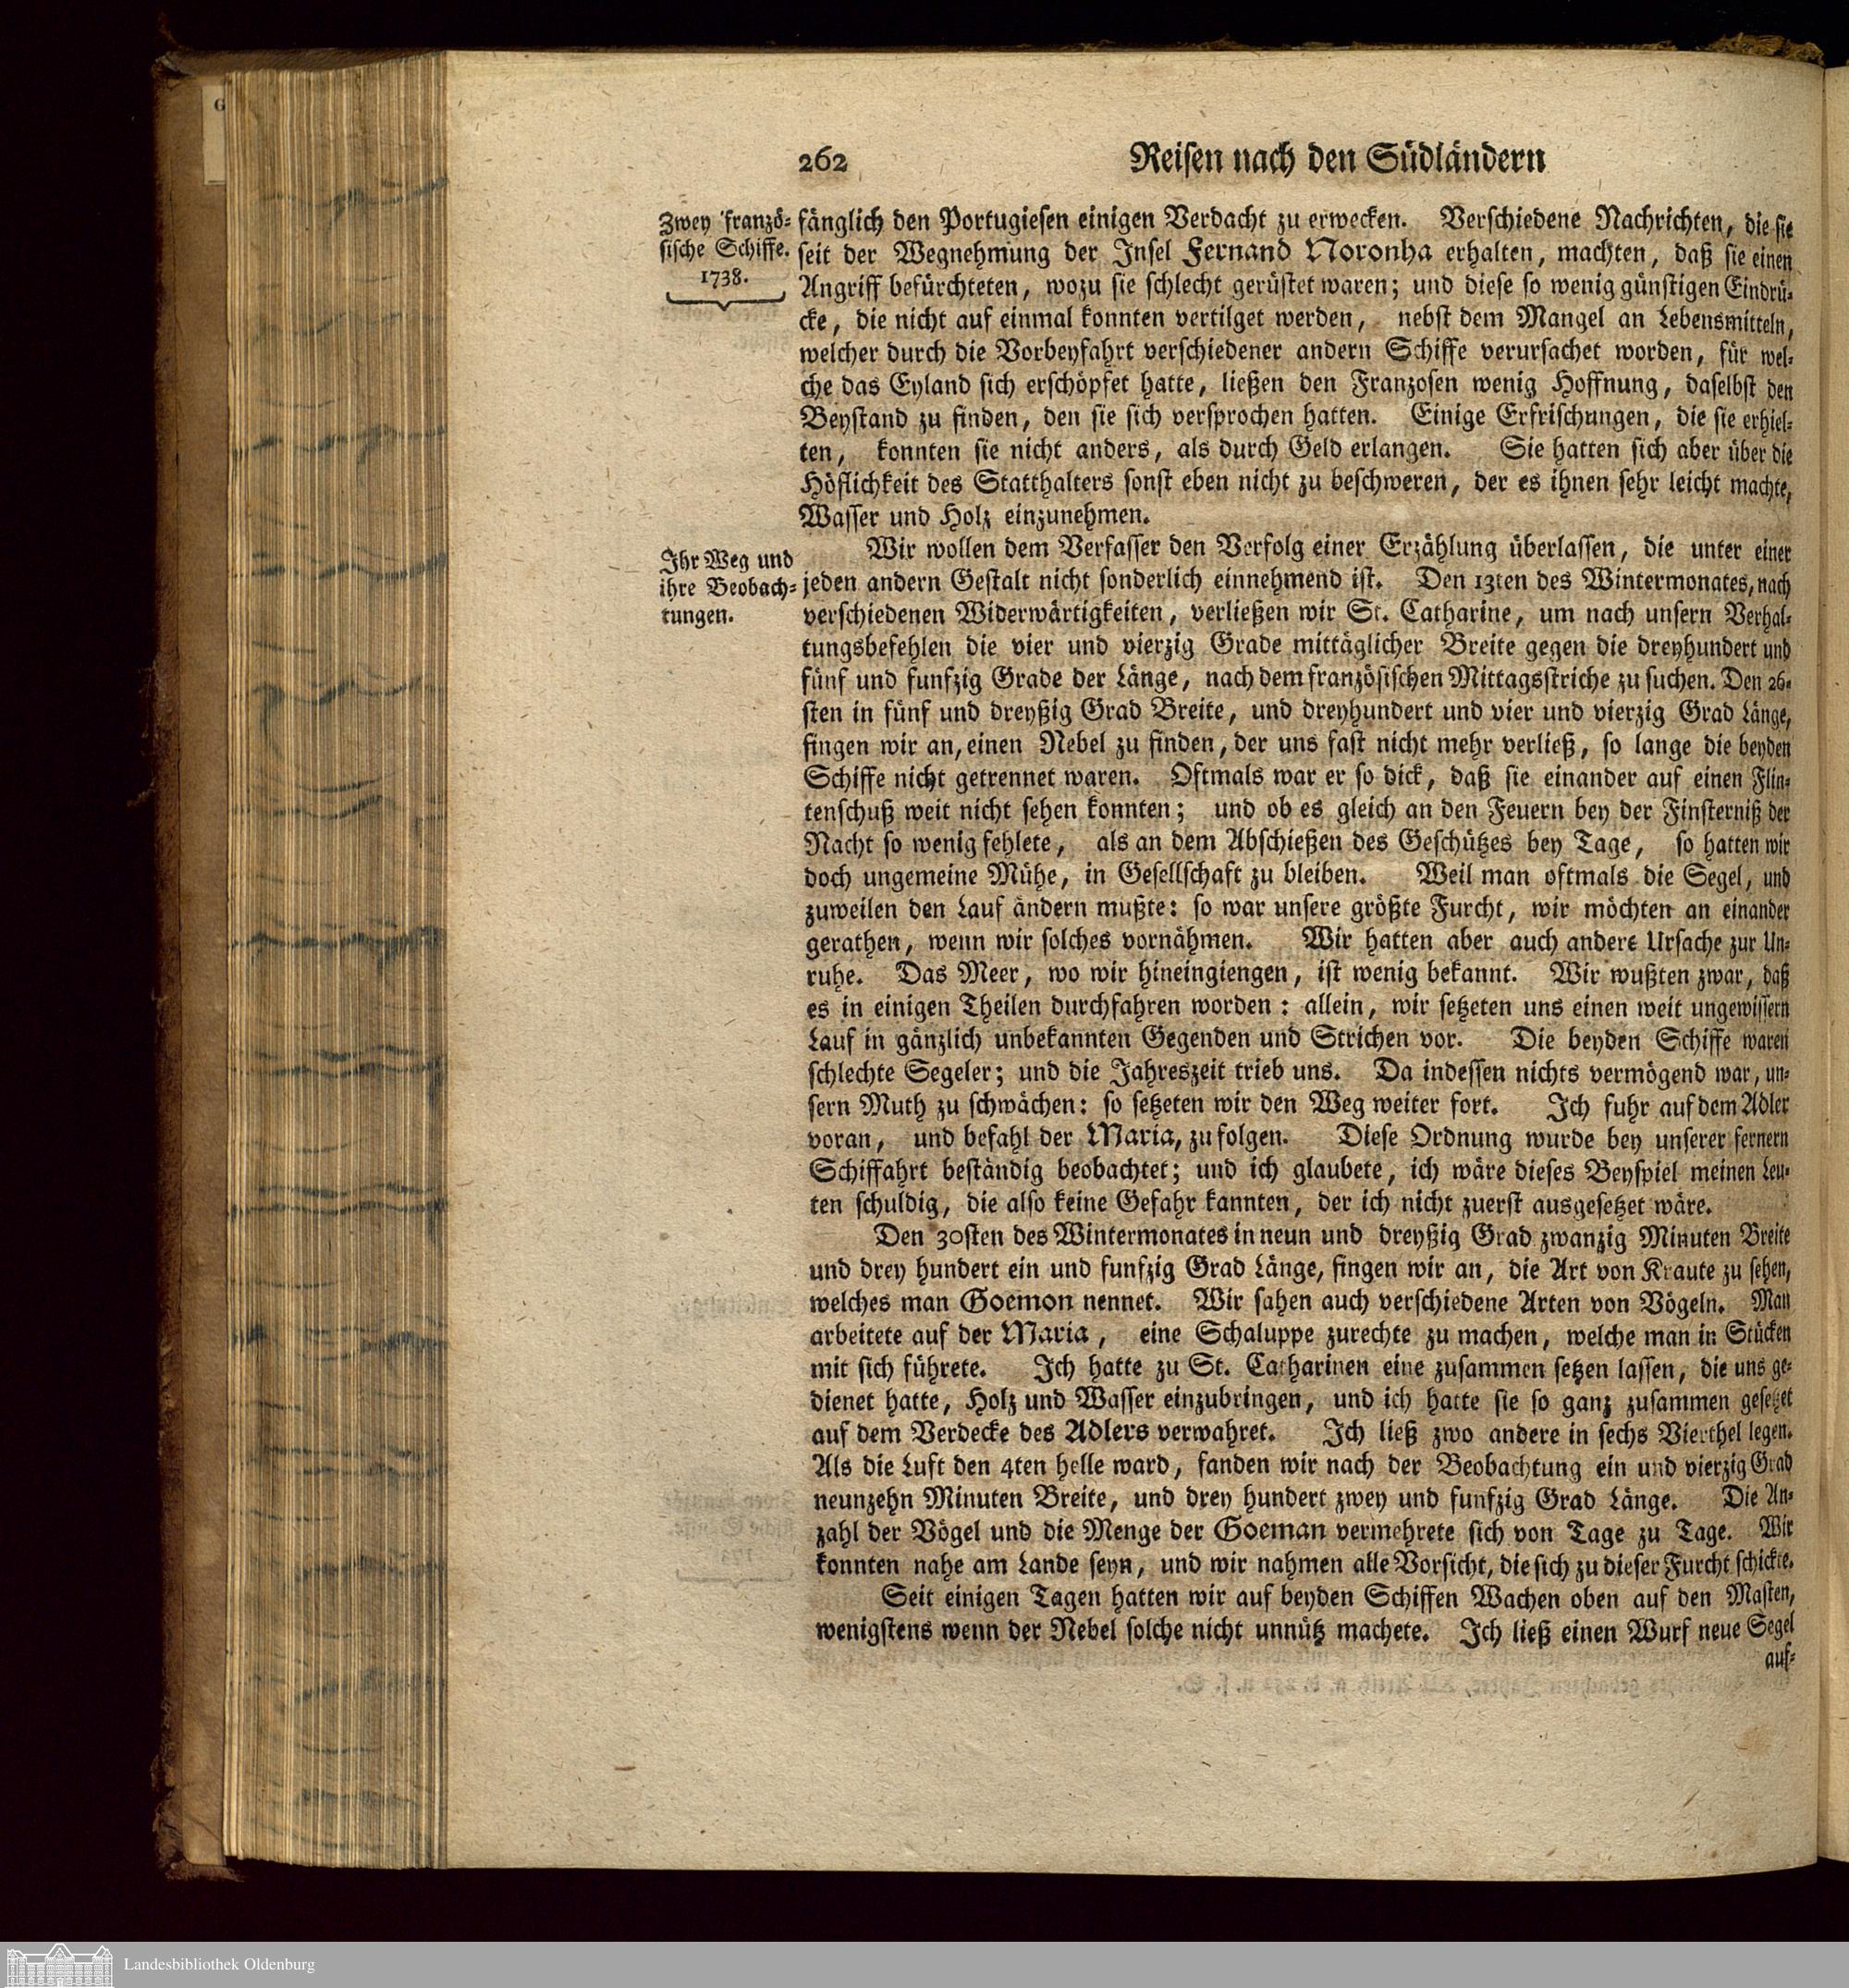 262 Reisen nach den Südländern
Zwey franzö-
sische Schiffe.
1738.
fänglich den Portugiesen einigen Verdacht zu erwecken. Verschiedene Nachrichten, die sie
seit der Wegnehmung der Insel Fernand Noronha erhalten, machten, daß sie einen
Angriff befürchteten, wozu sie schlecht gerüstet waren; und diese so wenig günstigen Eindrü-
cke, die nicht auf einmal konnten vertilget werden, nebst dem Mangel an Lebensmitteln,
welcher durch die Vorbeyfahrt verschiedener andern Schiffe verursachet worden, für wel-
che das Eyland sich erschöpfet hatte, ließen den Franzosen wenig Hoffnung, daselbst den
Beystand zu finden, den sie sich versprochen hatten. Einige Erfrischungen, die sie erhiel-
ten, konnten sie nicht anders, als durch Geld erlangen. Sie hatten sich aber über die
Höflichkeit des Statthalters sonst eben nicht zu beschweren, der es ihnen sehr leicht machte,
Wasser und Holz einzunehmen.
Ihr Weg und
ihre Beobach-
tungen.
Wir wollen dem Verfasser den Verfolg einer Erzählung überlassen, die unter einer
jeden andern Gestalt nicht sonderlich einnehmend ist. Den 13ten des Wintermonates, nach
verschiedenen Widerwärtigkeiten, verließen wir St. Catharine, um nach unsern Verhal-
tungsbefehlen die vier und vierzig Grade mittäglicher Breite gegen die dreyhundert und
fünf und funfzig Grade der Länge, nach dem französischen Mittagsstriche zu suchen. Den 26-
sten in fünf und dreyßig Grad Breite, und dreyhundert und vier und vierzig Grad Länge,
fingen wir an, einen Nebel zu finden, der uns fast nicht mehr verließ, so lange die beyden
Schiffe nicht getrennet waren. Oftmals war er so dick, daß sie einander auf einen Flin-
tenschuß weit nicht sehen konnten; und ob es gleich an den Feuern bey der Finsterniß der
Nacht so wenig fehlete, als an dem Abschießen des Geschützes bey Tage, so hatten wir
doch ungemeine Mühe, in Gesellschaft zu bleiben. Weil man oftmals die Segel, und
zuweilen den Lauf ändern mußte: so war unsere größte Furcht, wir möchten an einander
gerathen, wenn wir solches vornähmen. Wir hatten aber auch andere Ursache zur Un-
ruhe. Das Meer, wo wir hineingiengen, ist wenig bekannt. Wir wußten zwar, daß
es in einigen Theilen durchfahren worden: allein, wir setzeten uns einen weit ungewissern
Lauf in gänzlich unbekannten Gegenden und Strichen vor. Die beyden Schiffe waren
schlechte Segeler; und die Jahreszeit trieb uns. Da indessen nichts vermögend war, un-
sern Muth zu schwächen: so setzeten wir den Weg weiter fort. Ich fuhr auf dem Adler
voran, und befahl der Maria, zu folgen. Diese Ordnung wurde bey unserer fernern
Schiffahrt beständig beobachtet; und ich glaubete, ich wäre dieses Beyspiel meinen Leu-
ten schuldig, die also keine Gefahr kannten, der ich nicht zuerst ausgesetzet wäre.
Den 30sten des Wintermonates in neun und dreyßig Grad zwanzig Minuten Breite
und drey hundert ein und funfzig Grad Länge, fingen wir an, die Art von Kraute zu sehen,
welches man Goemon nennet. Wir sahen auch verschiedene Arten von Vögeln. Man
arbeitete auf der Maria, eine Schaluppe zurechte zu machen, welche man in Stücken
mit sich führete. Ich hatte zu St. Catharinen eine zusammen setzen lassen, die uns ge-
dienet hatte, Holz und Wasser einzubringen, und ich hatte sie so ganz zusammen gesetzet
auf dem Verdecke des Adlers verwahret. Ich ließ zwo andere in sechs Vierthel legen.
Als die Luft den 4ten helle ward, fanden wir nach der Beobachtung ein und vierzig Grad
neunzehn Minuten Breite, und drey hundert zwey und funfzig Grad Länge. Die An-
zahl der Vögel und die Menge der Goeman vermehrete sich von Tage zu Tage. Wir
konnten nahe am Lande seyn, und wir nahmen alle Vorsicht, die sich zu dieser Furcht schickte.
Seit einigen Tagen hatten wir auf beyden Schiffen Wachen oben auf den Masten,
wenigstens wenn der Nebel solche nicht unnütz machete. Ich ließ einen Wurf neue Segel
auf-
G
Landesbibliothek Oldenburg